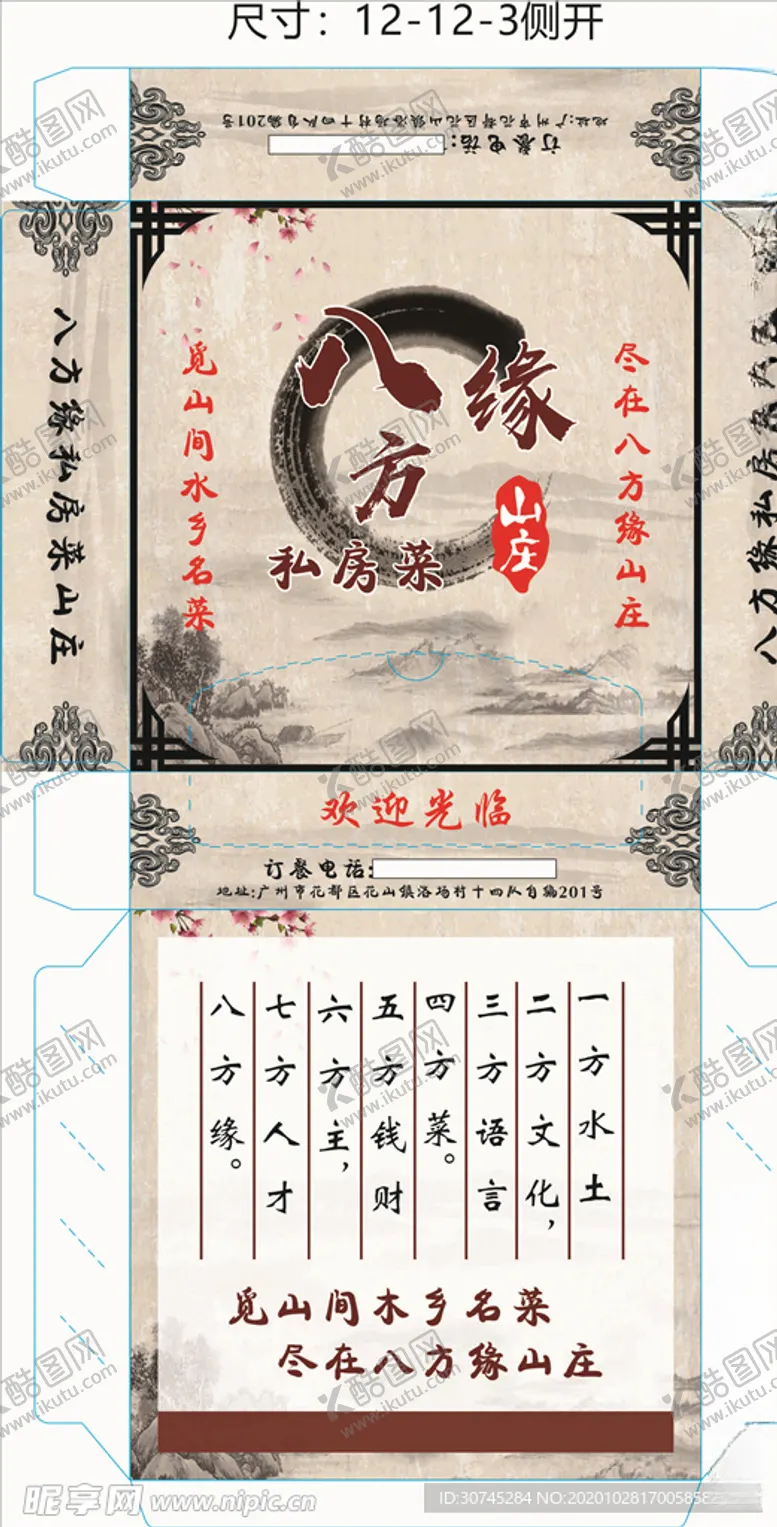 尺寸：12-12-3侧开
地址:广州市花都区花山镇洛场村十四队自编201号
订餐电话:
八方缘私房菜山庄
觅山间水乡名菜
八方缘
私房菜
山庄
尽在八方缘山庄
八方缘私房菜山庄
欢迎光临
订餐电话:
地址:广州市花都区花山镇洛场村十四队自编201号
一方水土
二方文化，
三方语言
四方菜。
五方钱财
六方主，
七方人才
八方缘。
觅山间木乡名菜
尽在八方缘山庄
酷图网
www.ikutu.com
昵享网 www.nipic.cn